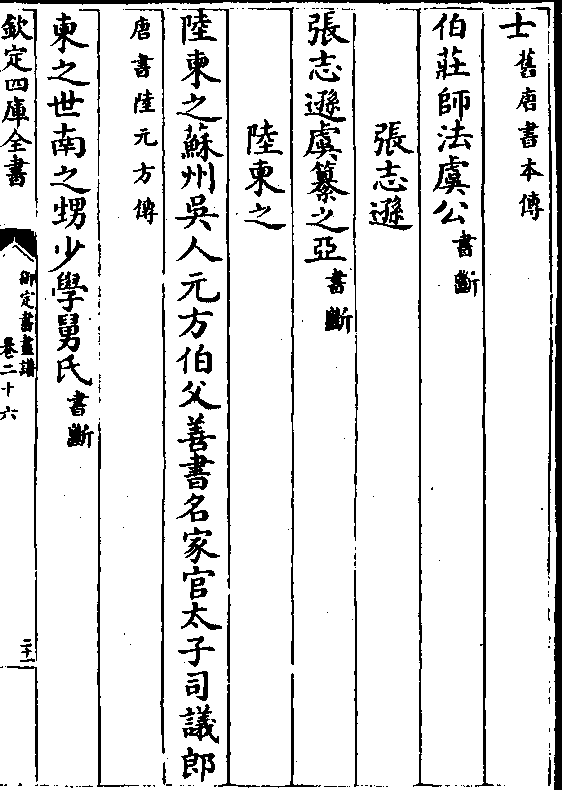 士舊唐書本傳
伯莊師法虞公書斷
張志遜
張志遜虞纂之亞書斷
陸柬之
陸柬之蘇州吳人元方伯父善書名家官太子司議郎
唐書陸元方傳
柬之世南之甥少學舅氏書斷
欽定四庫全書
御定書畫譜
卷二十六
二十一